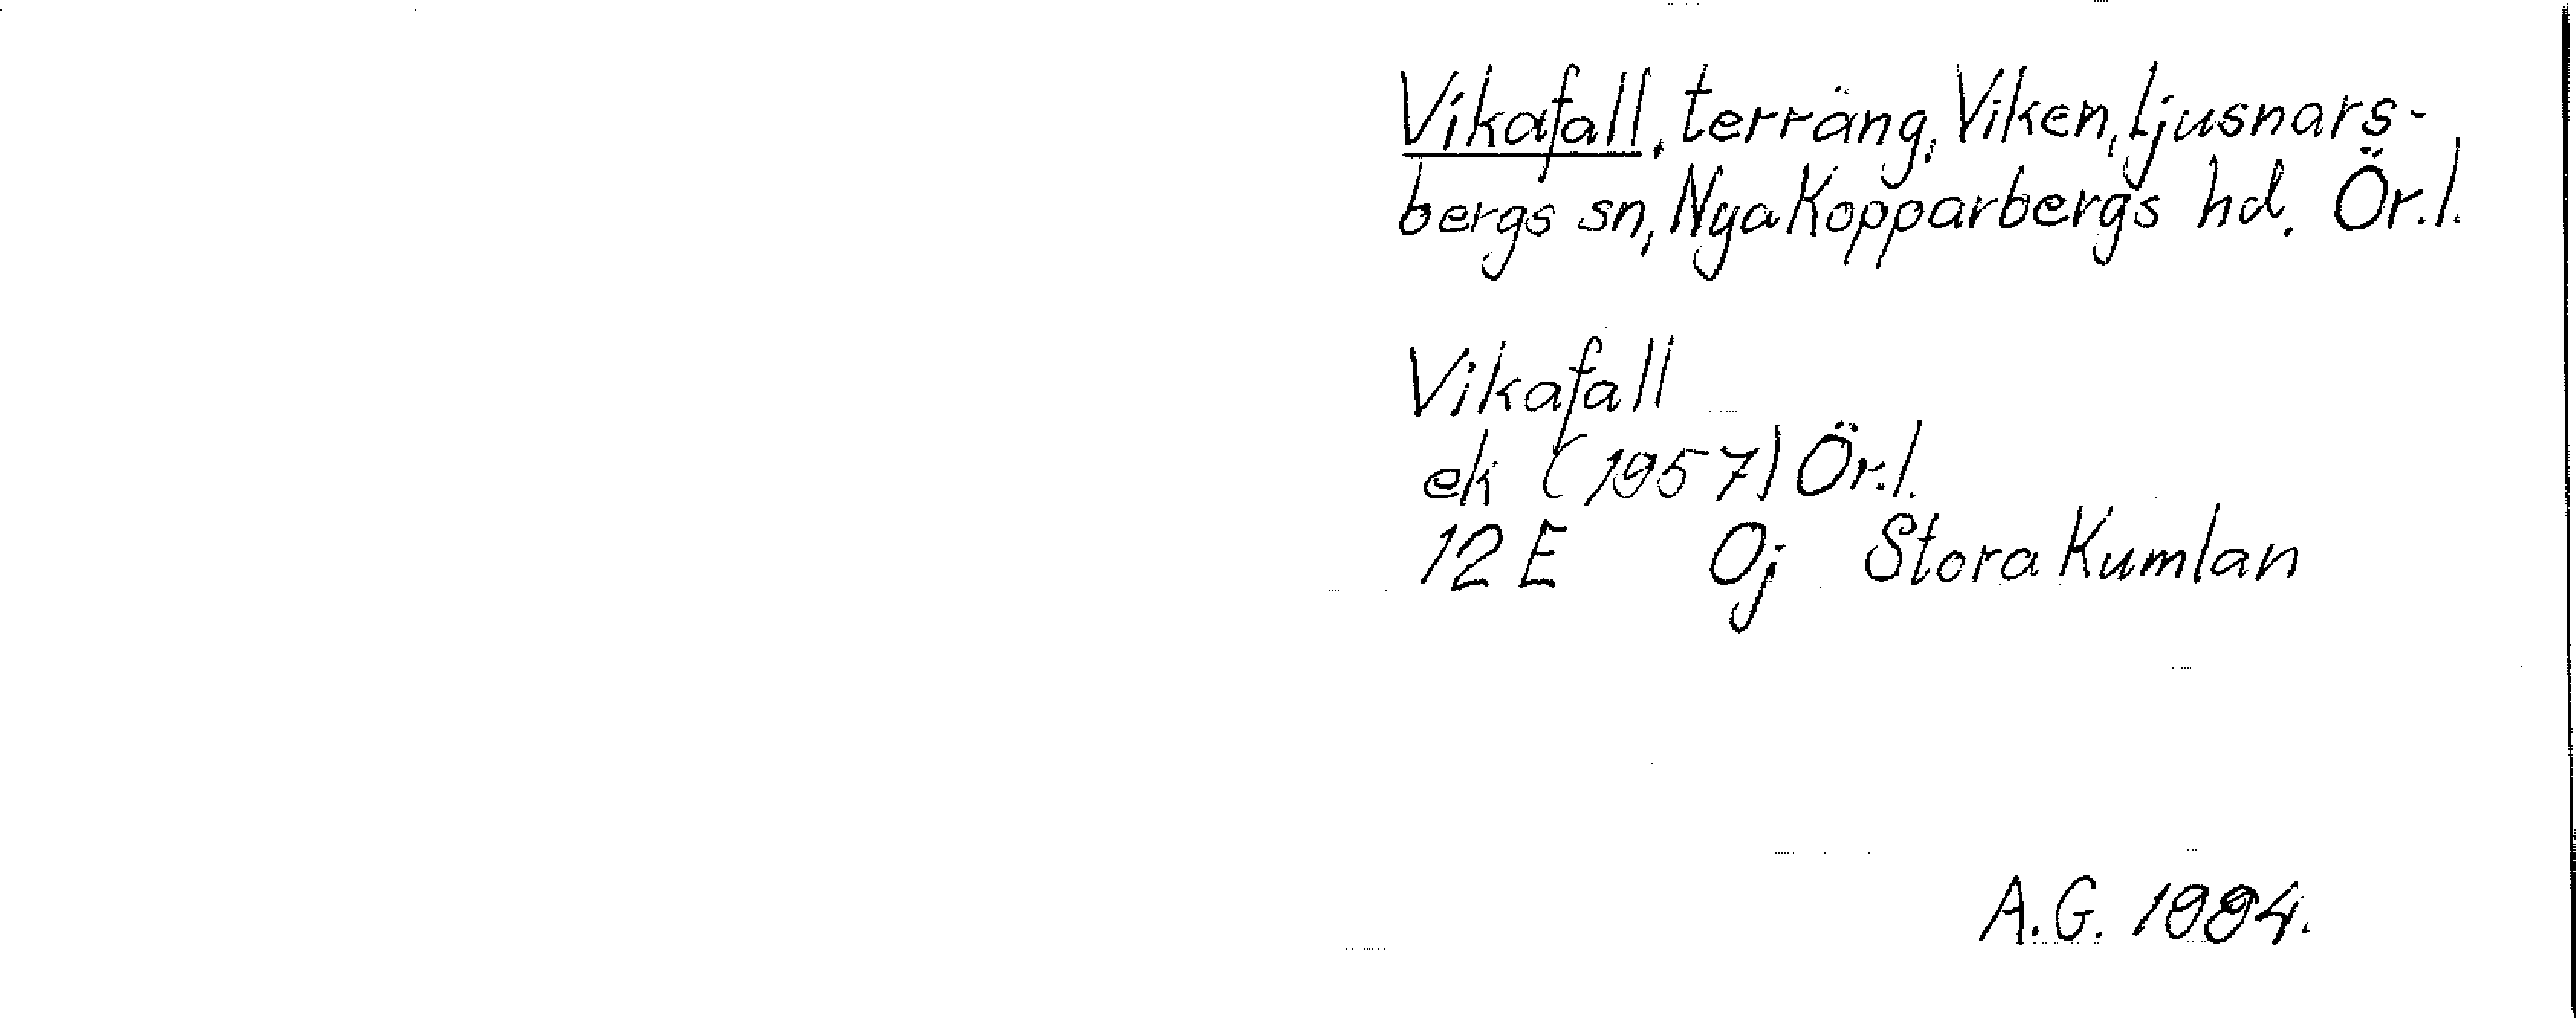 Vikafall, terräng, Viken, Ljusnars-
bergs sn, Nya Kopparbergs hd. Ör.l.
Vikafall
ek (1957) Ör.l.
12 E 0j Stora Kumlan
A.G. 1994.